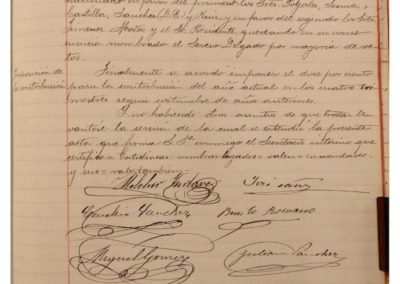 favor del primero los Sres. Pozales, Soma,
Castillo, Sanches (D. R.) y Ruiz, y en favor del segundo los Sres.
Jimenez, Mateo y el Sr. Presidente, quedando en su conse-
cuencia nombrado el Señor Delgado por mayoria de vo-
tos.
Imposicion de
la contribucion
Finalmente se acordó imponer el doce por ciento
para la contribucion del año actual en los cuatro tri-
mestres segun costumbre de años anteriores.
Y no habiendo otros asuntos de que tratar le-
vantose la sesion de la cual se extendió la presente
acta que firma S. Sª conmigo el Secretario interino que
certifico = Entrelineas = nombrados = valen =
y un = vale tambien =
Melchor
José
Sanchez
Benito Romano
Miguel Gomez
Julian Sanchez